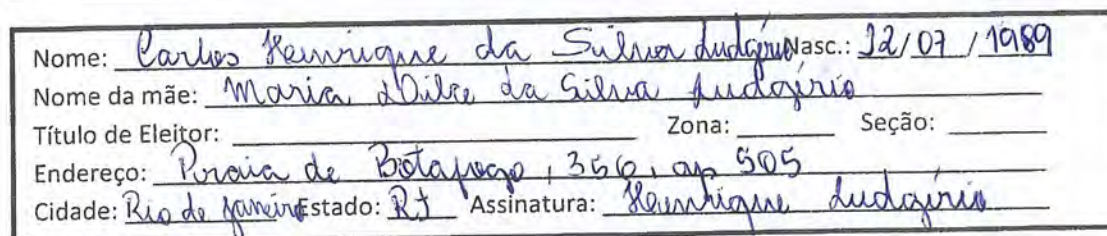 Nome: Carlos Henrique da Silva Ludgério Nasc.: 12/07/1989
Nome da mãe: Maria Dilce da Silva Ludgério
Título de Eleitor: Zona: Seção:
Endereço: Praia de Botafogo, 356, ap 505
Cidade: Rio de Janeiro Estado: RJ Assinatura: Henrique Ludgério